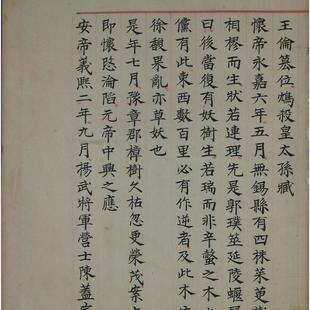 王倫篡位鴆殺皇太孫臧
懷帝永嘉六年五月無錫縣有四株茱萸樹
相樛而生狀若連理先是郭璞筮延陵蝘鼠
曰後當復有妖樹生若瑞而非辛螫之木也
儻有此東西數百里必有作逆者及此木生
徐馥果亂亦草妖也
是年七月豫章郡樟樹久枯忽更榮茂案
即懷愍淪陷元帝中興之應
安帝義熙二年九月揚武將軍營士陳蓋家